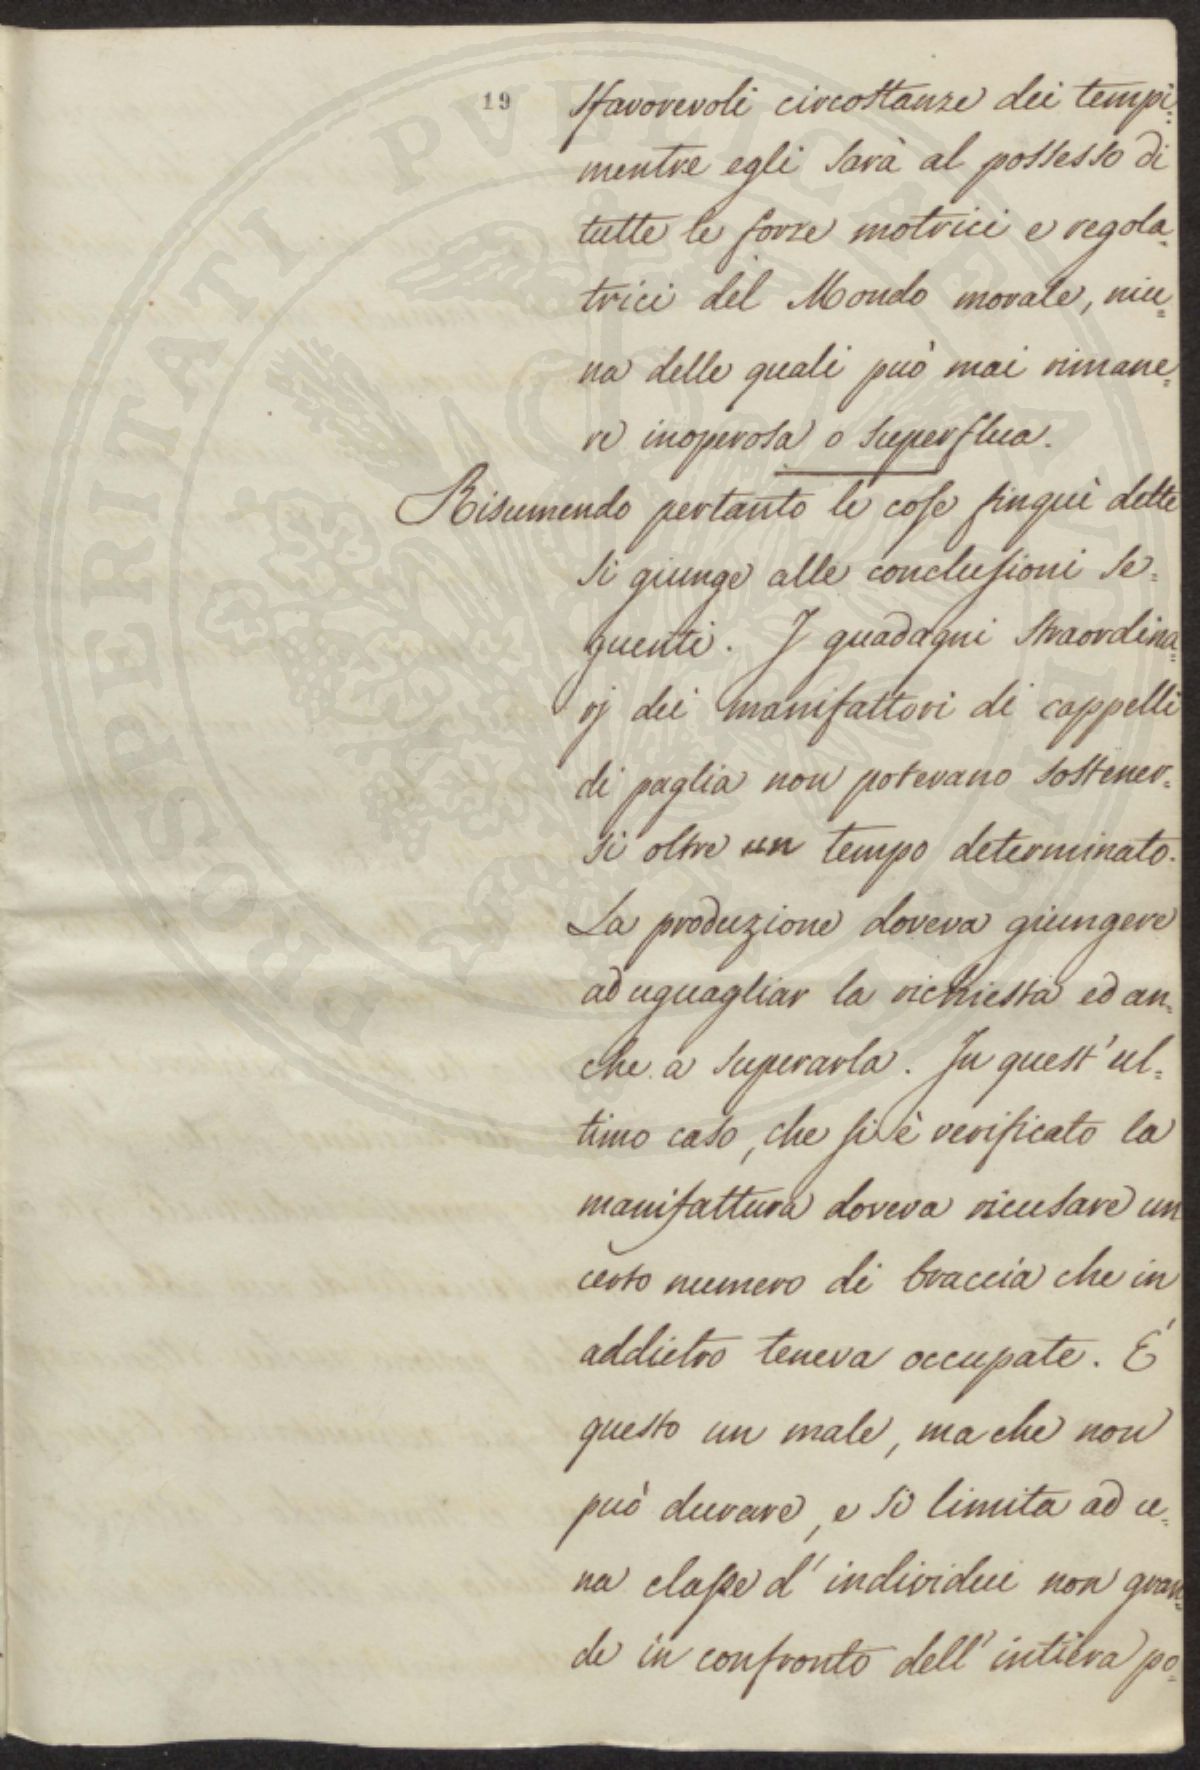 19
sfavorevoli circostanze dei tempi=
mentre egli sarà al possesso di
tutte le forze motrici e regola=
trici del Mondo morale, niu=
na delle quali può mai rimane=
re inoperosa o superflua.
Risumendo pertanto le cose finquì dette
si giunge alle conclusioni se=
guenti. I guadagni straordina=
rj dei manifattori di cappelli
di paglia non potevano sostener=
si oltre un tempo determinato.
La produzione doveva giungere
ad uguagliar la richiesta ed an=
che a superarla. In quest'ul=
timo caso, che si è verificato la
manifattura doveva ricusare un
certo numero di braccia che in
addietro teneva occupate. É
questo un male, ma che non
può durare, e si limita ad u=
na classe d'individui non gran=
de in confronto dell'intiera po=
PROSPERITATI PVBLICAE AVGENDAE